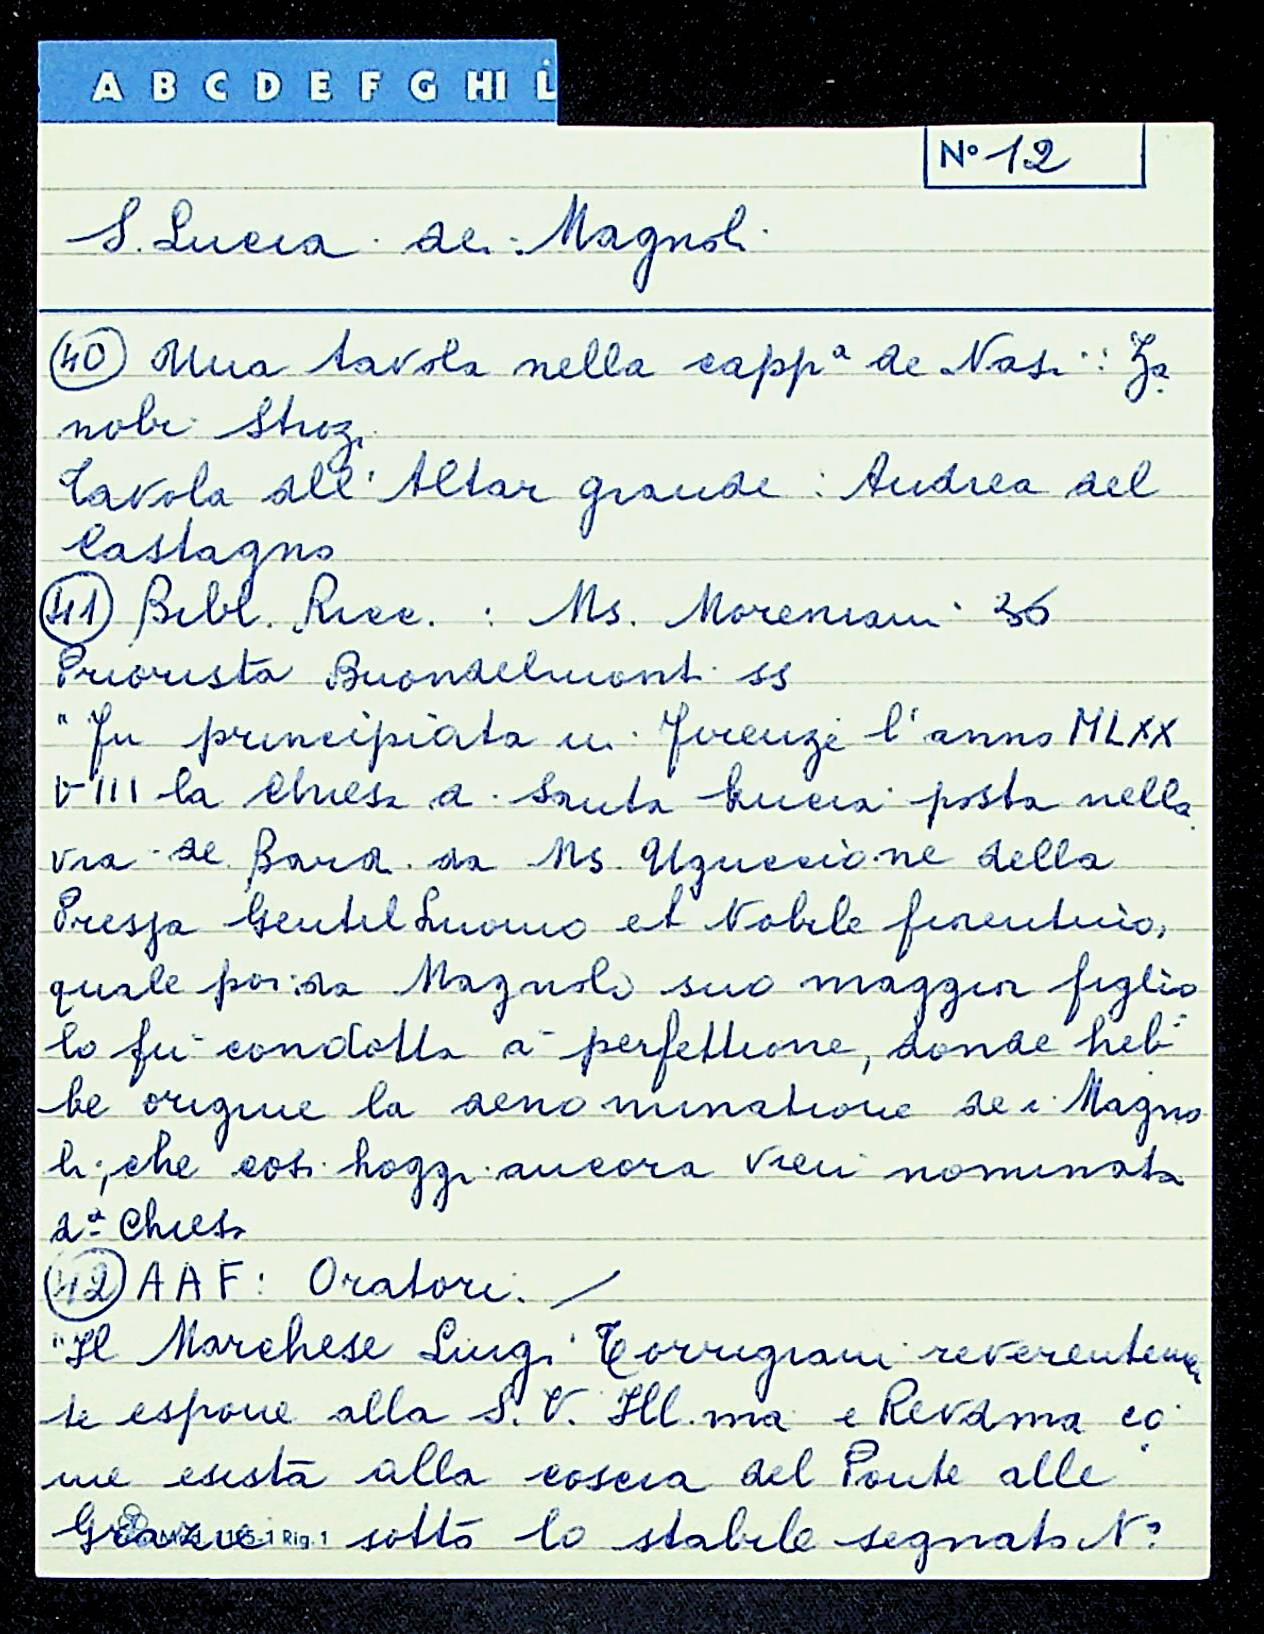 A B C D E F G HI L
N° 12
S. Lucia dei Magnoli
40 Una tavola nella capp.a de Nasi: Za
nobi Strozi
Tavola all'Altar grande: Andrea del
Castagno
41 Bibl. Ricc. : Ms. Moreniani 36
Priorista Buondelmonti ss
"Fu principiata in Firenze l'anno MLXX
VIII la Chiesa di Santa Lucia posta nella
via de Bardi da Ms Uguccione della
Pressa Gentil Luomo et Nobile fiorentino,
quale poi da Magnolo suo maggior figlio
lo fu condotta a perfettione, donde heb
be origine la denominatione dei Magno
li, che così hoggi ancora vien nominata
d.a Chiesa
42 AAF: Oratori. /
"Il Marchese Luigi Torrigiani reverentemen
te espone alla S. V. Ill.ma e Revdma co
me esista alla coscia del Ponte alle
Grazie sotto lo stabile segnato N°
Mod. 1165-1 Rig. 1